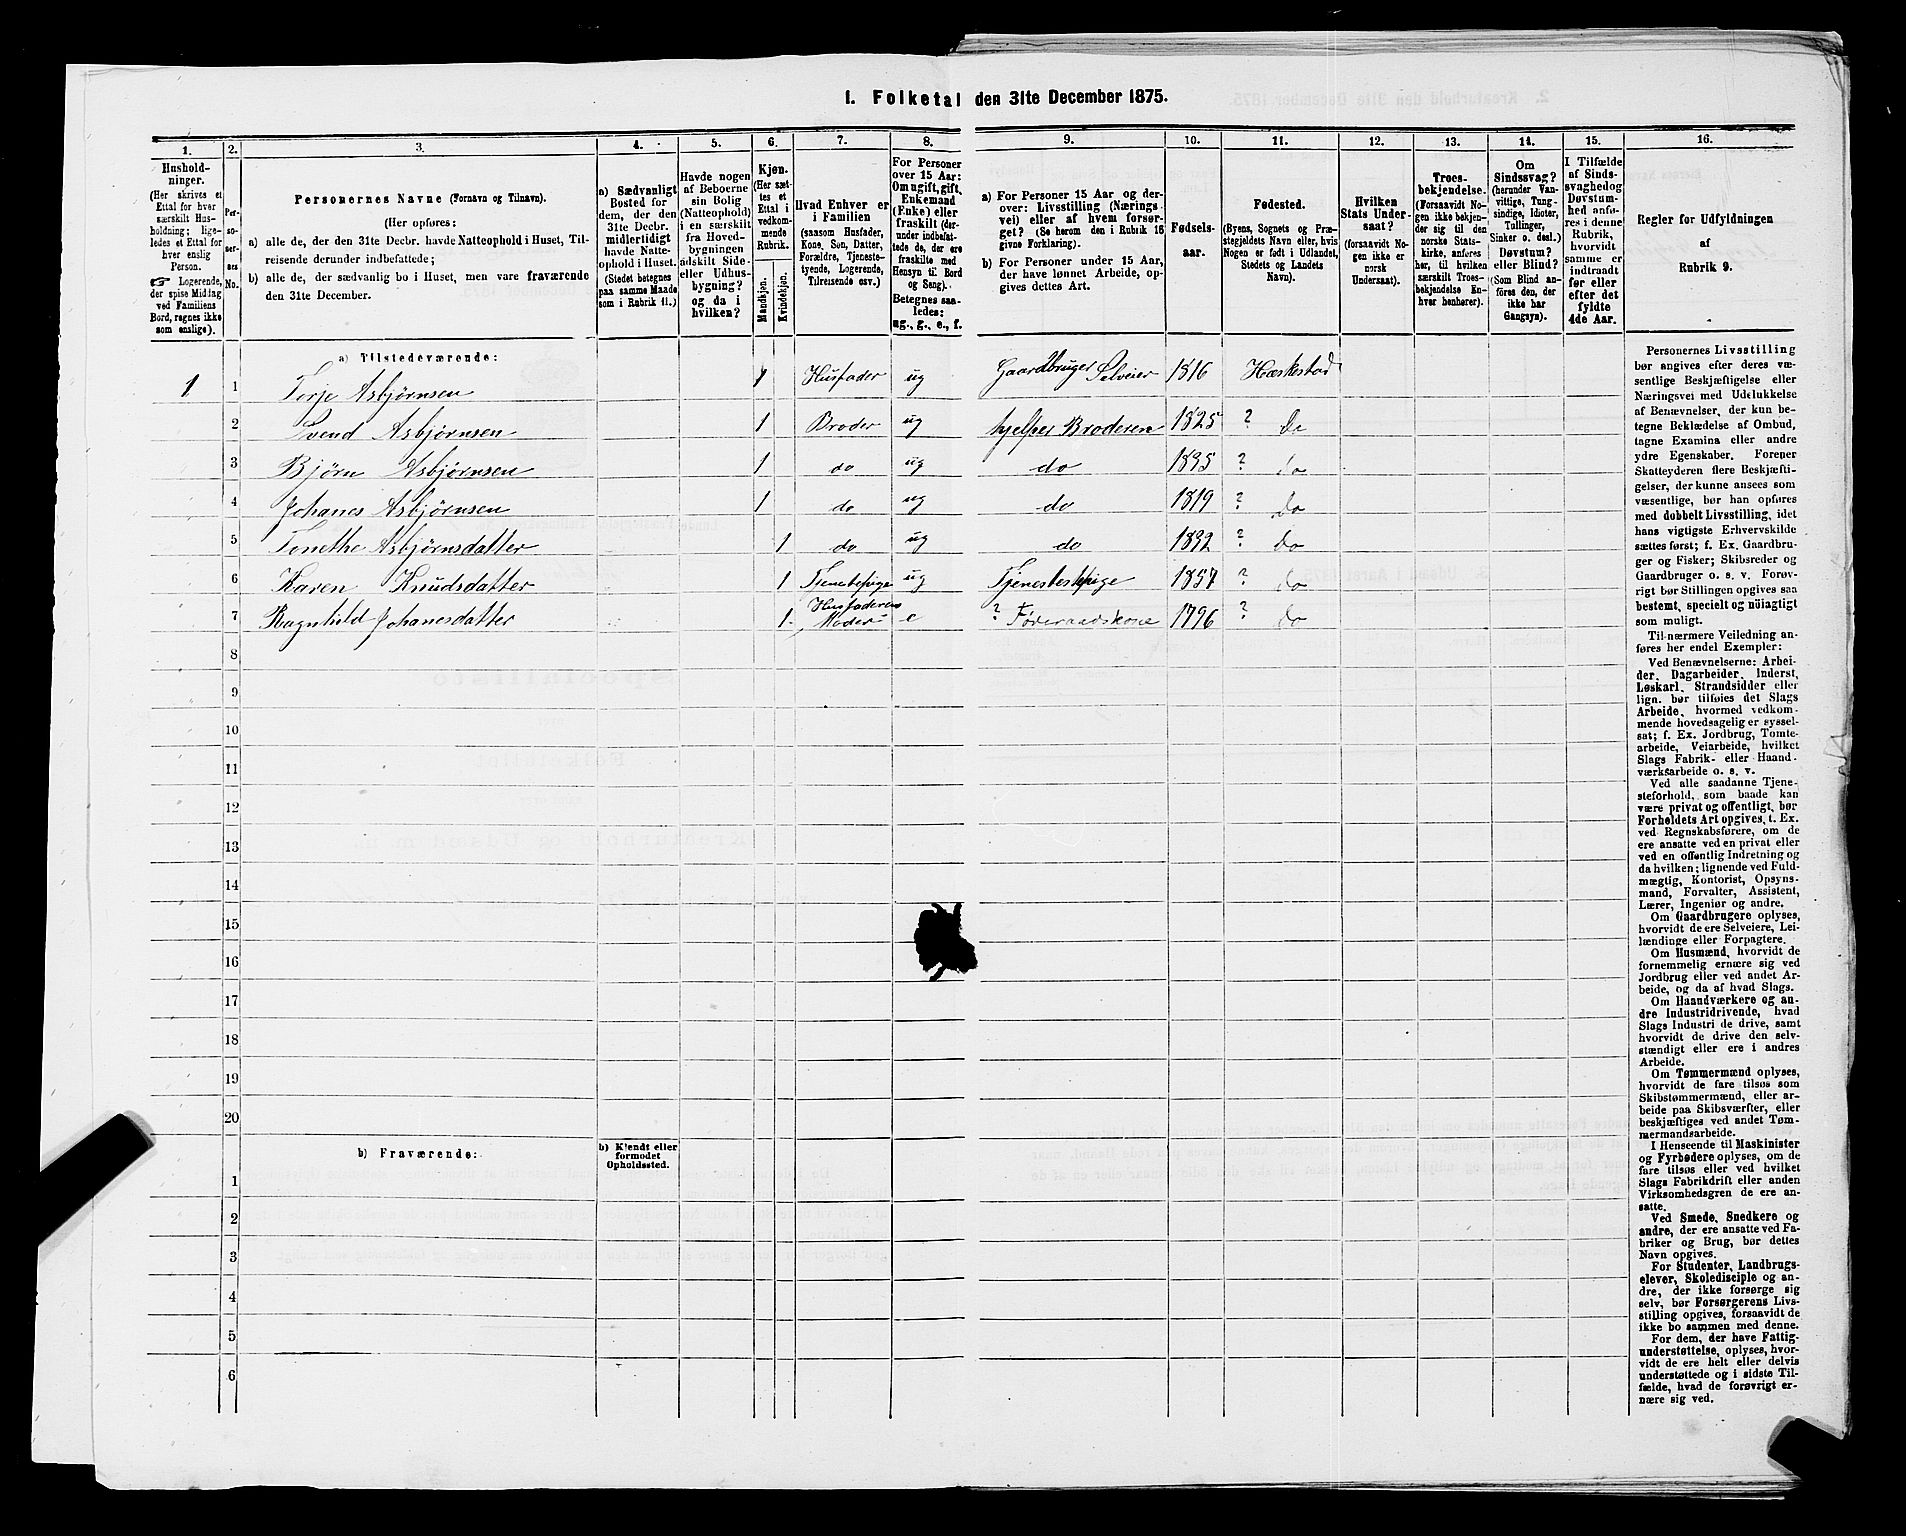 1. Folketal den 31te December 1875.
1. 2. 3. 4. 5. 6. 7. 8. 9. 10. 11. 12. 13. 14. 15. 16.
Hushold-
ninger.
(Her skrives et
Ettal for hver
særskilt Hus-
holdning; lige-
ledes et Ettal for
hver enslig
Person.
☞ Logerende,
der spise Middag
ved Familiens
Bord, regnes ikke
som enslige).
Per-
so-
ner-
nes
No.
Personernes Navne (Fornavn og Tilnavn).
(Her opføres:
a) alle de, der den 31te Decbr. havde Natteophold i Huset, Til-
reisende derunder indbefattede;
b) alle de, der sædvanlig bo i Huset, men vare fraværende
den 31te December.
a) Sædvanligt
Bosted for
dem, der den
31te Decbr.
midlertidigt
havde Natte-
ophold i Huset.
(Stedet betegnes
paa samme Maade
som i Rubrik 11.)
Havde nogen
af Beboerne
sin Bolig
(Natteophold)
i en særskilt
fra Hoved-
bygningen
adskilt Side-
eller Udhus-
bygning?
og da i
hvilken?
Kjøn.
(Her sæt-
tes et
Ettal i
vedkom-
mende
Rubrik.
Mandkjøn.
Kvindekjøn.
Hvad Enhver er
i Familien
(saasom Husfader,
Kone, Søn, Datter,
Forældre, Tjeneste-
tyende, Logerende,
Tilreisende osv.)
For Personer
over 15 Aar:
Om ugift, gift,
Enkemand
(Enke) eller
fraskilt (der-
under indbefat-
tede de, der ere
fraskilte med
Hensyn til Bord
og Seng).
Betegnes saa-
ledes:
ug., g., e., f.
a) For Personer 15 Aar og der-
over: Livsstilling (Nærings-
vei) eller af hvem forsør-
get? (Se herom den i Rubrik 16
givne Forklaring).
b) For Personer under 15 Aar,
der have lønnet Arbeide, op-
gives dettes Art.
Fødsels-
aar.
Fødested.
(Byens, Sognets og Præ-
stegjeldets Navn eller, hvis
Nogen er født i Udlandet,
Stedets og Landets
Navn).
Hvilken
Stats Under-
saat?
(forsaavidt No-
gen ikke er
norsk
Undersaat).
Troes-
bekjendelse.
(Forsaavidt No-
gen ikke bekjen-
der sig til den
norske Stats-
kirke, anføres
her, til hvilken
særskilt Troes-
bekjendelse En-
hver henhører).
Om
Sindssvag?
(herunder Van-
vittige, Tung-
sindige, Idioter,
Tullinger,
Sinker o. desl.)
Døvstum?
eller Blind?
(Som Blind an-
føres den, der
ikke har
Gangsyn).
I Tilfælde
af Sinds-
svaghed og
Døvstum-
hed anfø-
res i denne
Rubrik,
hvorvidt
samme er
indtraadt
før eller
efter det
fyldte
4de Aar.
Regler for Udfyldningen
af
Rubrik 9.
a) Tilstedeværende:
1 1 Terje Asbjørnsen 1 Husfader ug Gaardbruger Selveier 1816 Hæskestad
2 Svend Asbjørnsen 1 Broder ug hjelper Broderen 1825 ? Do
3 Bjørn Asbjørnsen 1 do ug do 1835 ? do
4 Johanes Asbjørnsen 1 do ug do 1819 ? Do
5 Tonethe Asbjørnsdatter 1 do ug do 1832 ? Do
6 Karen Knudsdatter 1 Tjenestepige ug Tjenestepige 1857 ? do
7 Ragnhild Johanesdatter 1 Husfaderens Moder e ? Føderaadskone 1796 ? do
8
9
10
11
12
13
14
15
16
17
18
19
20
b) Fraværende:
b) Kjendt eller
formodet
Opholdssted.
1
2
3
4
5
6
Personernes Livsstilling
bør angives efter deres væ-
sentlige Beskjæftigelse eller
Næringsvei med Udelukkelse
af Benævnelser, der kun be-
tegne Beklædelse af Ombud,
tagne Examina eller andre
ydre Egenskaber. Forener
Skatteyderen flere Beskjæfti-
gelser, der kunne ansees som
væsentlige, bør han opføres
med dobbelt Livsstilling, idet
hans vigtigste Erhvervskilde
sættes først; f. Ex. Gaardbru-
ger og Fisker; Skibsreder og
Gaardbruger o. s. v. Forøv-
rigt bør Stillingen opgives saa
bestemt, specielt og nøiagtigt
som muligt.
Til nærmere Veiledning an-
føres her endel Exempler:
Ved Benævnelserne: Arbei-
der, Dagarbeider, Inderst,
Løskarl, Strandsidder eller
lign. bør tilføies det Slags
Arbeide, hvormed vedkom-
mende hovedsagelig er syssel-
sat; f. Ex. Jordbrug, Tomte-
arbeide, Veiarbeide, hvilket
Slags Fabrik- eller Haand-
værksarbeide o. s. v.
Ved alle saadanne Tjene-
steforhold, som baade kan
være privat og offentligt, bør
Forholdets Art opgives, t. Ex.
ved Regnskabsførere, om de
ere ansatte ved en privat eller
ved en offentlig Indretning og
da hvilken; lignende ved Fuld-
mægtig, Kontorist, Opsyns-
mand, Forvalter, Assistent,
Lærer, Ingeniør og andre.
Om Gaardbrugere oplyses,
hvorvidt de ere Selveiere, Lei-
lændinge eller Forpagtere.
Om Husmænd, hvorvidt de
fornemmelig ernære sig ved
Jordbrug eller ved andet Ar-
beide, og da af hvad Slags.
Om Haandværkere og an-
dre Industridrivende, hvad
Slags Industri de drive, samt
hvorvidt de drive den selv-
stændigt eller ere i andres
Arbeide.
Om Tømmermænd oplyses,
hvorvidt de fare tilsøs som
Skibstømmermænd, eller ar-
beide paa Skibsværfter, eller
beskjæftiges ved andet Tøm-
mermandsarbeide.
I Henseende til Maskinister
og Fyrbødere oplyses, om de
fare tilsøs eller ved hvilket
Slags Fabrikdrift eller anden
Virksomhedsgren de ere an-
satte.
Ved Smede, Snedkere og
andre, der ere ansatte ved Fa-
briker og Brug, bør dettes
Navn opgives.
For Studenter, Landbrugs-
elever, Skoledisciple og an-
dre, der ikke forsørge sig
selv, bør Forsørgerens Livs-
stilling opgives, forsaavidt de
ikke bo sammen med denne.
For dem, der have Fattig-
understøttelse, oplyses, hvor-
vidt de ere helt eller delvis
understøttede og i sidste Til-
fælde, hvad de forøvrigt er-
nære sig ved.